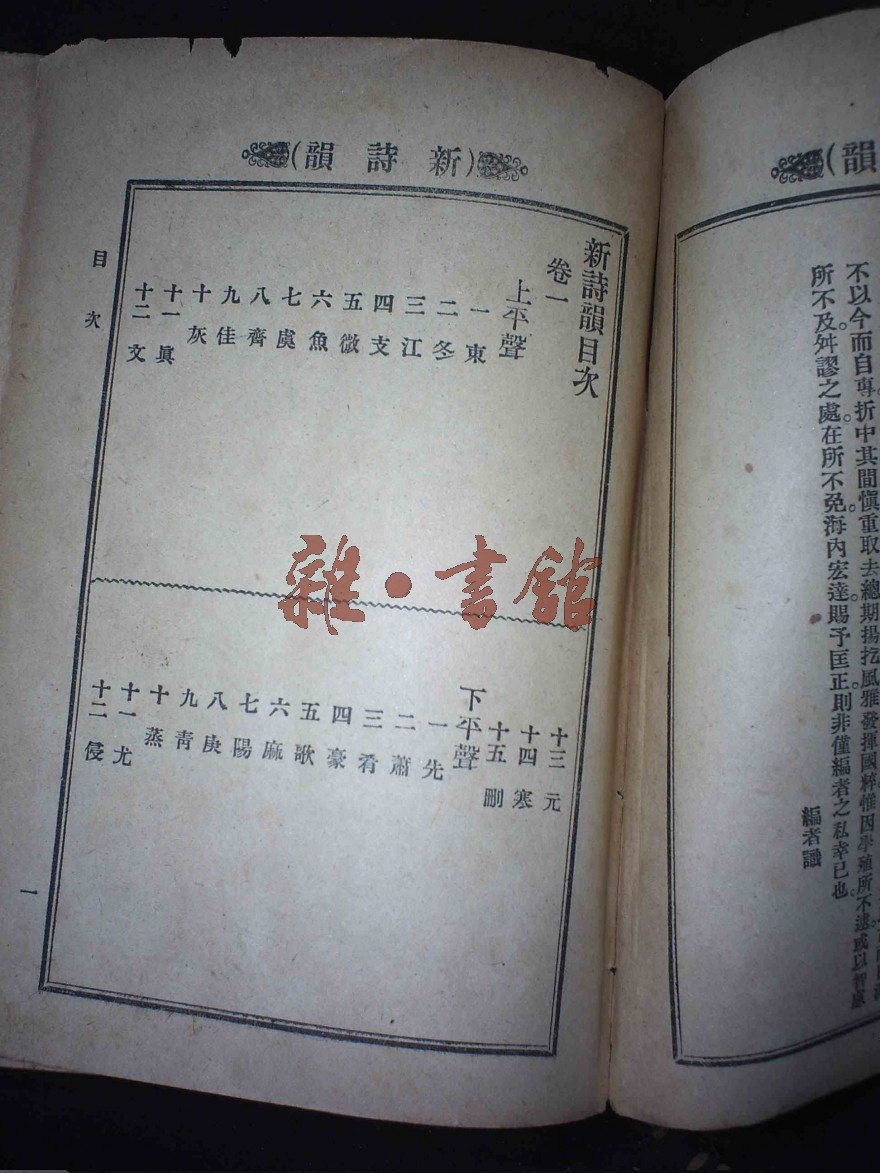 韻
不以今而自專。折中其間愼重取去。總期揚扢風雅。發揮國粹。惟因學殖所不逮。或以智慮
所不及。舛謬之處。在所不免。海內宏達。賜予匡正。則非僅編者之私幸已也。
編者識
新詩韻
新詩韻目次
卷一
上平聲
一 東
二 冬
三 江
四 支
五 微
六 魚
七 虞
八 齊
九 佳
十 灰
十一 眞
十二 文
十三 元
十四 寒
十五 刪
下平聲
一 先
二 蕭
三 肴
四 豪
五 歌
六 麻
七 陽
八 庚
九 靑
十 蒸
十一 尤
十二 侵
目次
一
雜·書館